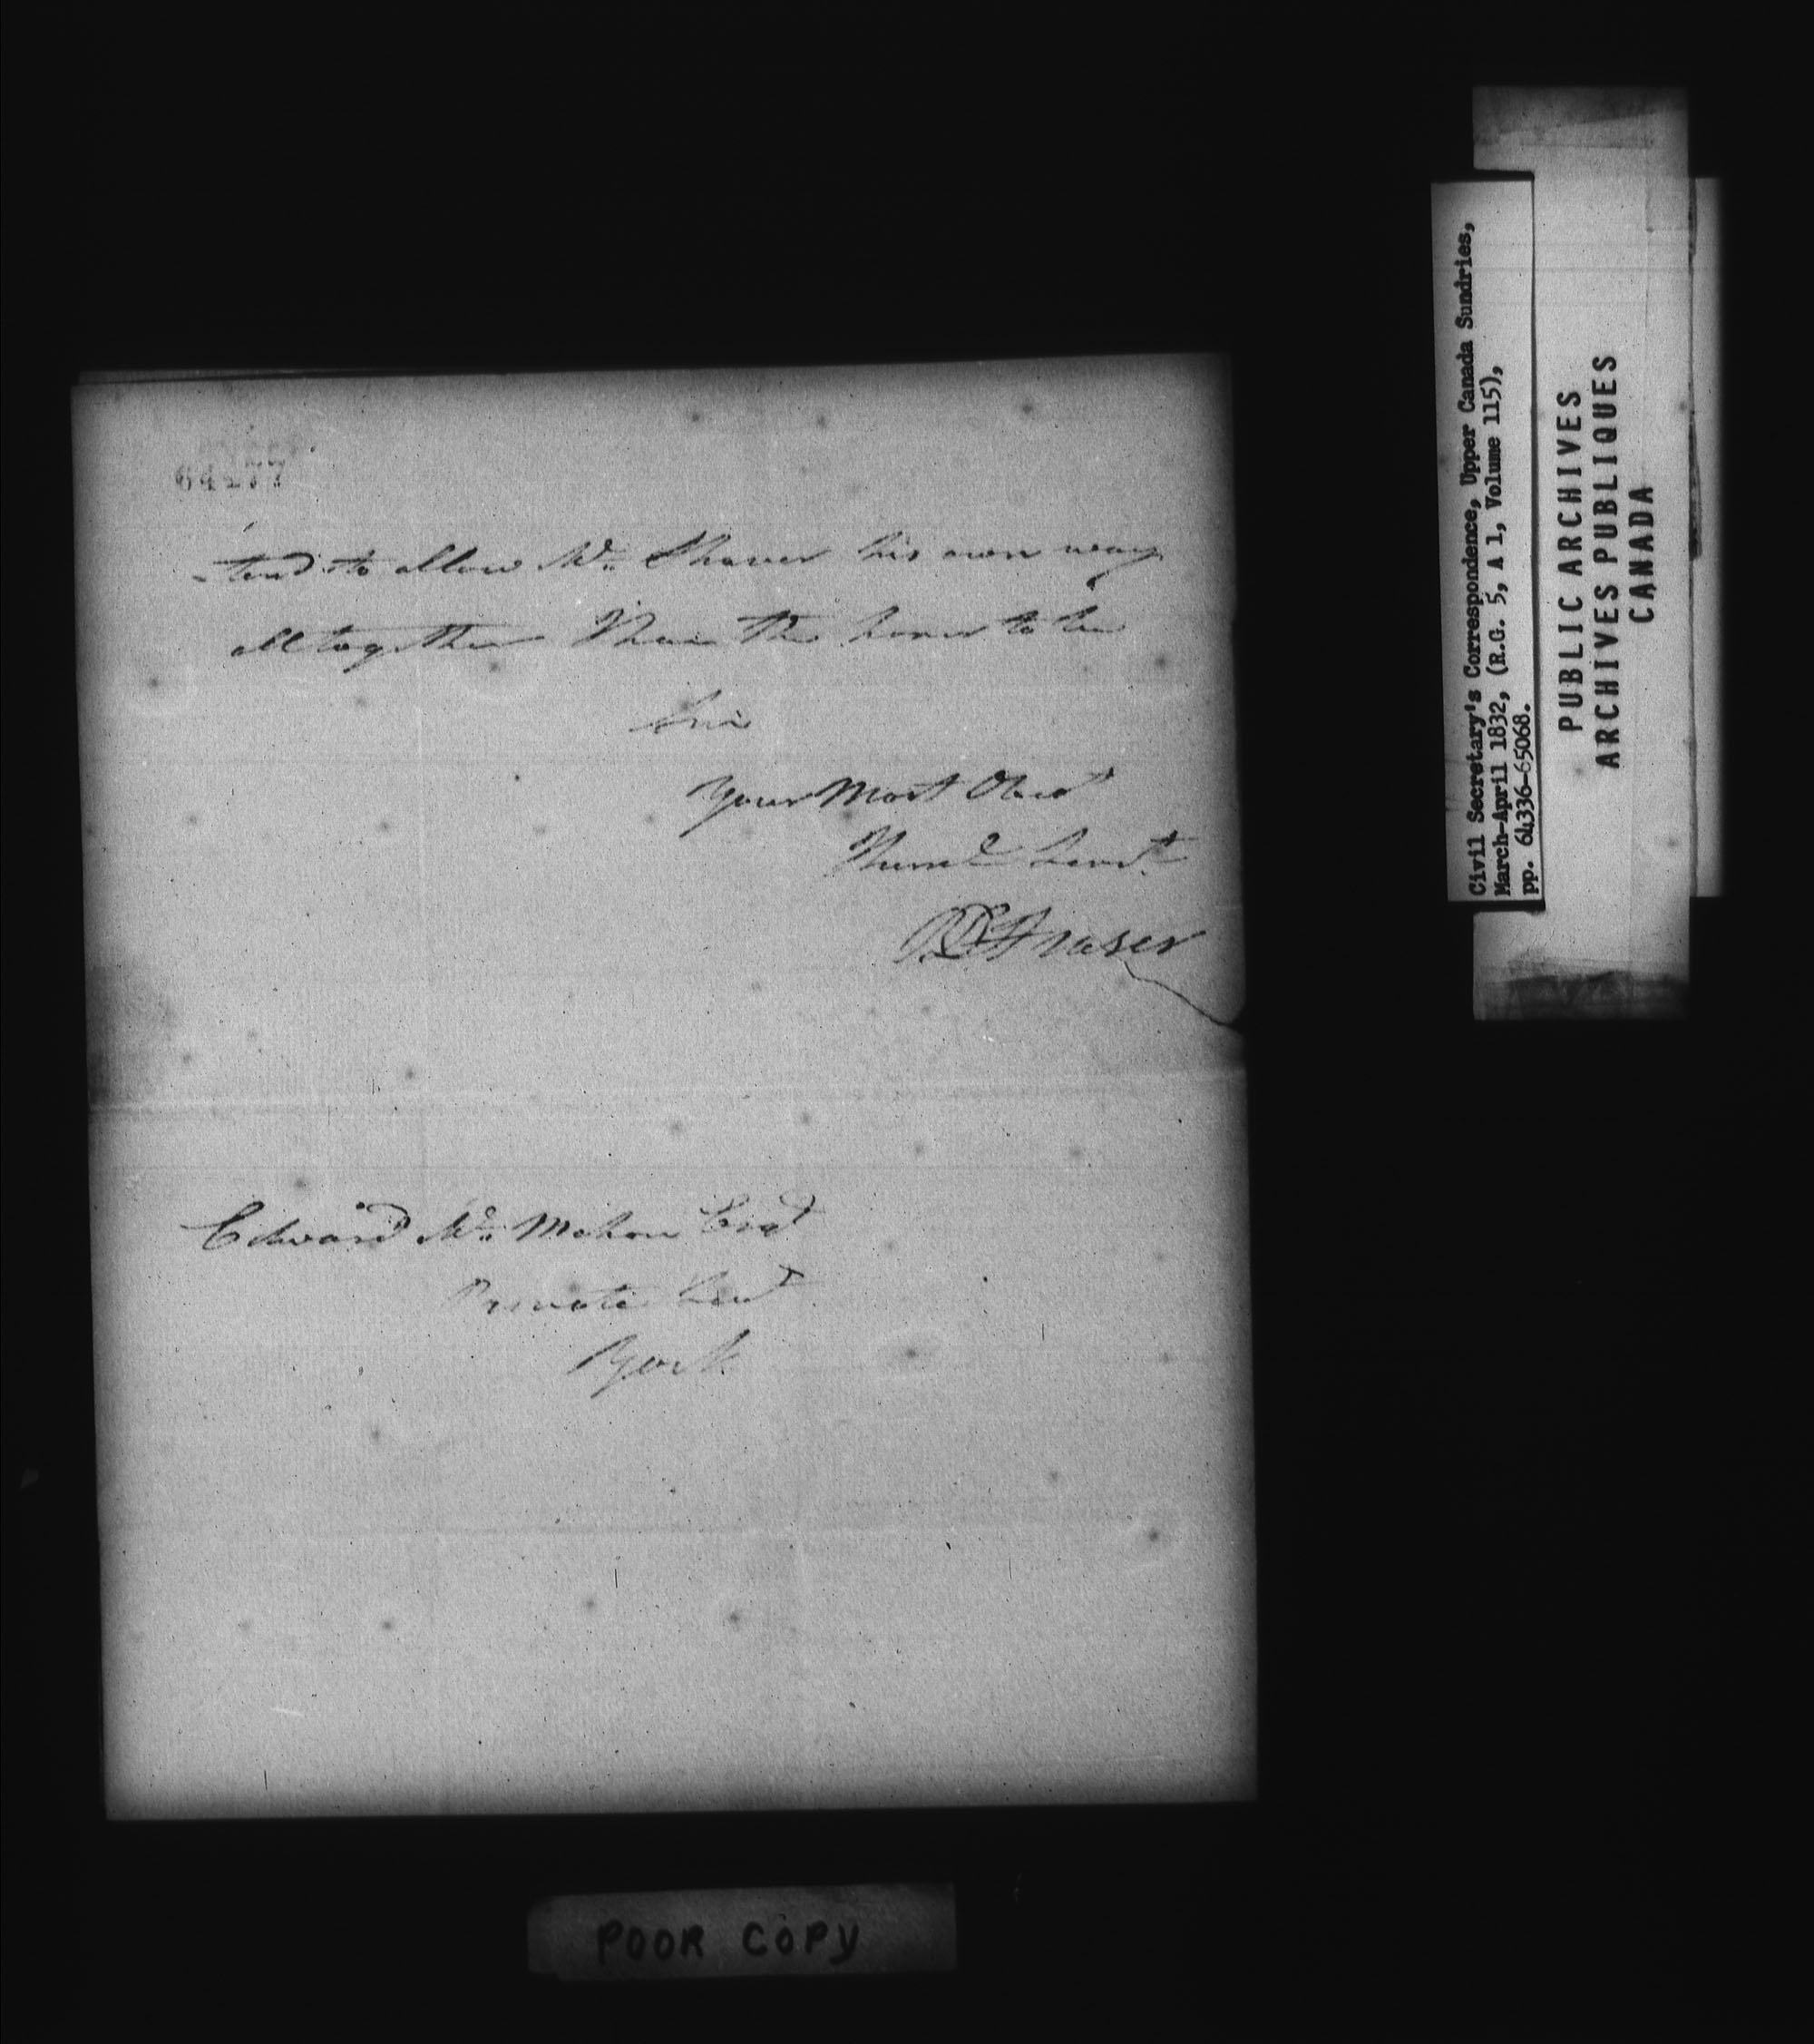 -tend to allow Mr. Shaver his own way
alltogether I have the honor to be
Sir
Your Most Obedt
Huml Servt
RD Fraser
Edward Mc Mahon Esqr
Private Secy
York
POOR COPY
Civil Secretary's Correspondence, Upper Canada Sundries,
March-April 1832, (R.G. 5, A 1, Volume 115),
pp. 64336-65068.
PUBLIC ARCHIVES
ARCHIVES PUBLIQUES
CANADA